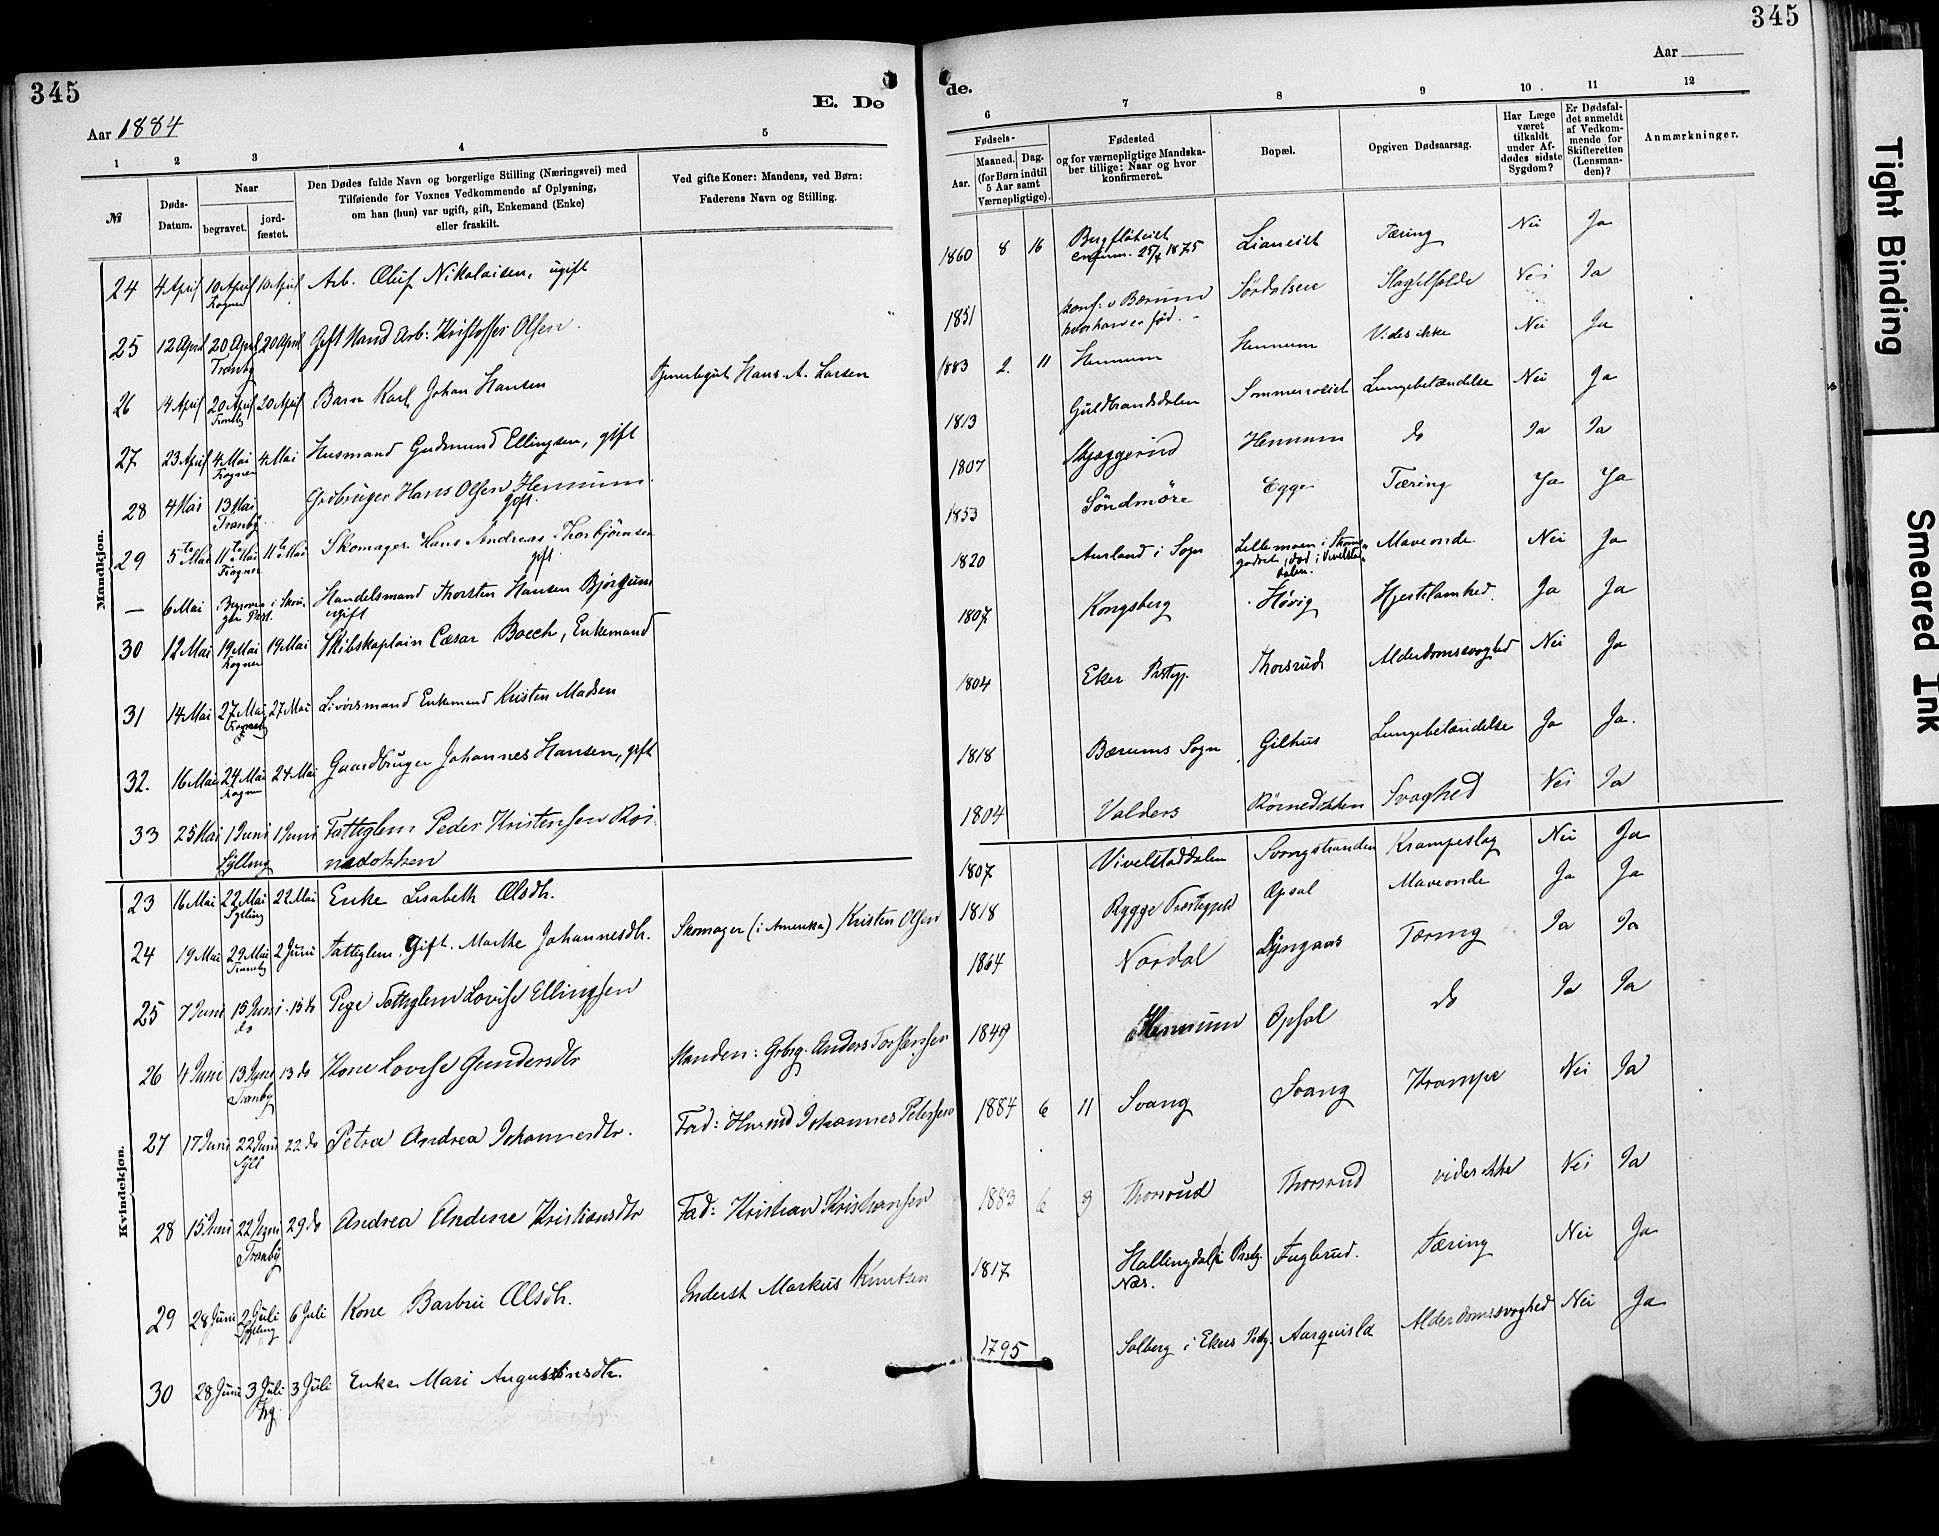 345
345
Aar 1884
E. Dø
de.
Aar
1
2
3
4
5
6
7
8
9
10
11
12
№
Døds-
Datum.
Naar
begravet.
jord-
fæstet.
Den Dødes fulde Navn og borgerlige Stilling (Næringsvei) med
Tilføiende for Voxnes Vedkommende af Oplysning,
om han (hun) var ugift, gift, Enkemand (Enke)
eller fraskilt.
Ved gifte Koner: Mandens, ved Børn:
Faderens Navn og Stilling.
Fødsels-
Aar.
Maaned.
Dag.
(for Børn indtil
5 Aar samt
Værnepligtige).
Fødested
og for værnepligtige Mandska-
ber tillige: Naar og hvor
konfirmeret.
Bopæl.
Opgiven Dødsaarsag.
Har Læge
været
tilkaldt
under Af-
dødes sidste
Sygdom?
Er Dødsfal-
det anmeldt
af Vedkom-
mende for
Skifteretten
(Lensman-
den)?
Anmærkninger.
Mandkjøn.
24 4 April 10 April 10 April Arb. Oluf Nikolaisen, ugift 1860 8 16 Lianeiet Tæring Nei Ja
Frogner 25/4 1875
25 12 April 20 April 20 April Gift Mand Arb: Kristoffer Olsen 1851 konf: i Bærum Nei Ja
Tranby hvor han er fød.
26 4 April 20 April 20 April Barn Karl Johan Hansen Hans A. Larsen 1883 2. 11 Hennum Hennum Vides ikke Nei Ja
Tranby
27 23 April 4 Mai 4 Mai Husmand Gudmund Ellingsen, gift 1813 Guldbrandsdalen Lungebetændelse Nei Ja
Frogner
28 4 Mai 13 Mai Grdbruger Hans Olsen Hennum 1807 Skjæggerud Hennum do Ja Ja
Tranby gift.
29 5te Mai 11te Mai 11te Mai Skomager Hans Andreas Thorbjørnsen 1853 Söndmöre Egge Tæring Ja Ja
Frogner gift
— 6 Mai Handelsmand Thorsten Hansen Bjørgum 1820 Aurland i Sogn Lillemoen i Strøms- Maveonde Nei Ja
ugift
30 12 Mai 19 Mai 19 Mai Skibskaptain Cæsar Boeck, Enkemand 1807 Kongsberg Høvig Hjertelamhed Ja Ja
Frogner
31 14 Mai 27 Mai 27 Mai Enkemand Kristen Madsen 1804 Eker Prstgj. Thorsrud Alderdomssvaghed Nei Ja
32. 16 Mai 24 Mai 24 Mai Gaardbruger Johannes Hansen, gift 1818 Bærums Sogn Gilhus Lungebetændelse Ja Ja.
Frogner
33 25 Mai 1 Juni 1 Juni Fattiglem Peder Kristensen Röi- 1804 Valders Svaghed Nei Ja
Sylling nedokken
Kvindekjøn.
23 16 Mai 22 Mai 22 Mai Enke Lisabeth Olsdtr. 1807 Vivelstaddalen Svangstranden Krampeslag Nei Ja
Sylling
24 19 Mai 29 Mai 2 Juni Fattiglem, Gift. Marthe Johannesdtr. Skomager (i Amerika) Kristen Olsen 1818 Rygge Præstegjeld Opsal Maveonde Ja Ja
Tranby
25 7 Juni 15 Juni 15 do Pige Fattiglem Lovise Ellingsen 1864 Nordal Lyngaas Tæring Ja Ja
do
26 4 Juni 13 Juni 13 do Kone Lovise Gundersdtr Manden: Grbrg. Anders Torstensen 1849 Hennum Opsal do Ja Ja
Tranby
27 17 Juni 22 Juni 22 do Petra Andrea Johannesdtr. Fad: Husmd Johannes Petersen 1884 6 11 Svang Svang Krampe Nei Ja
Syll
28 15 Juni 22 Juni 29 do Andrea Andine Kristiansdtr Fad: Kristian Kristiansen 1883 6 9 Thorsrud Thorsrud vides ikke Nei Ja
Tranby
29 28 Juni 2 Juli 6 Juli Kone Barbru Olsdtr. Inderst Markus Knutsen 1817 Hallingdal Prstg. Fuglerud. Tæring Nei Ja
Sylling Næs.
30 28 Juni 3 Juli 3 Juli Enke Mari Augustinsdtr. 1795 Solberg i Ekers Prstg. Aarqvisla Alderdomssvaghed Nei Ja
Frg.
Tight Binding
Smeared Ink